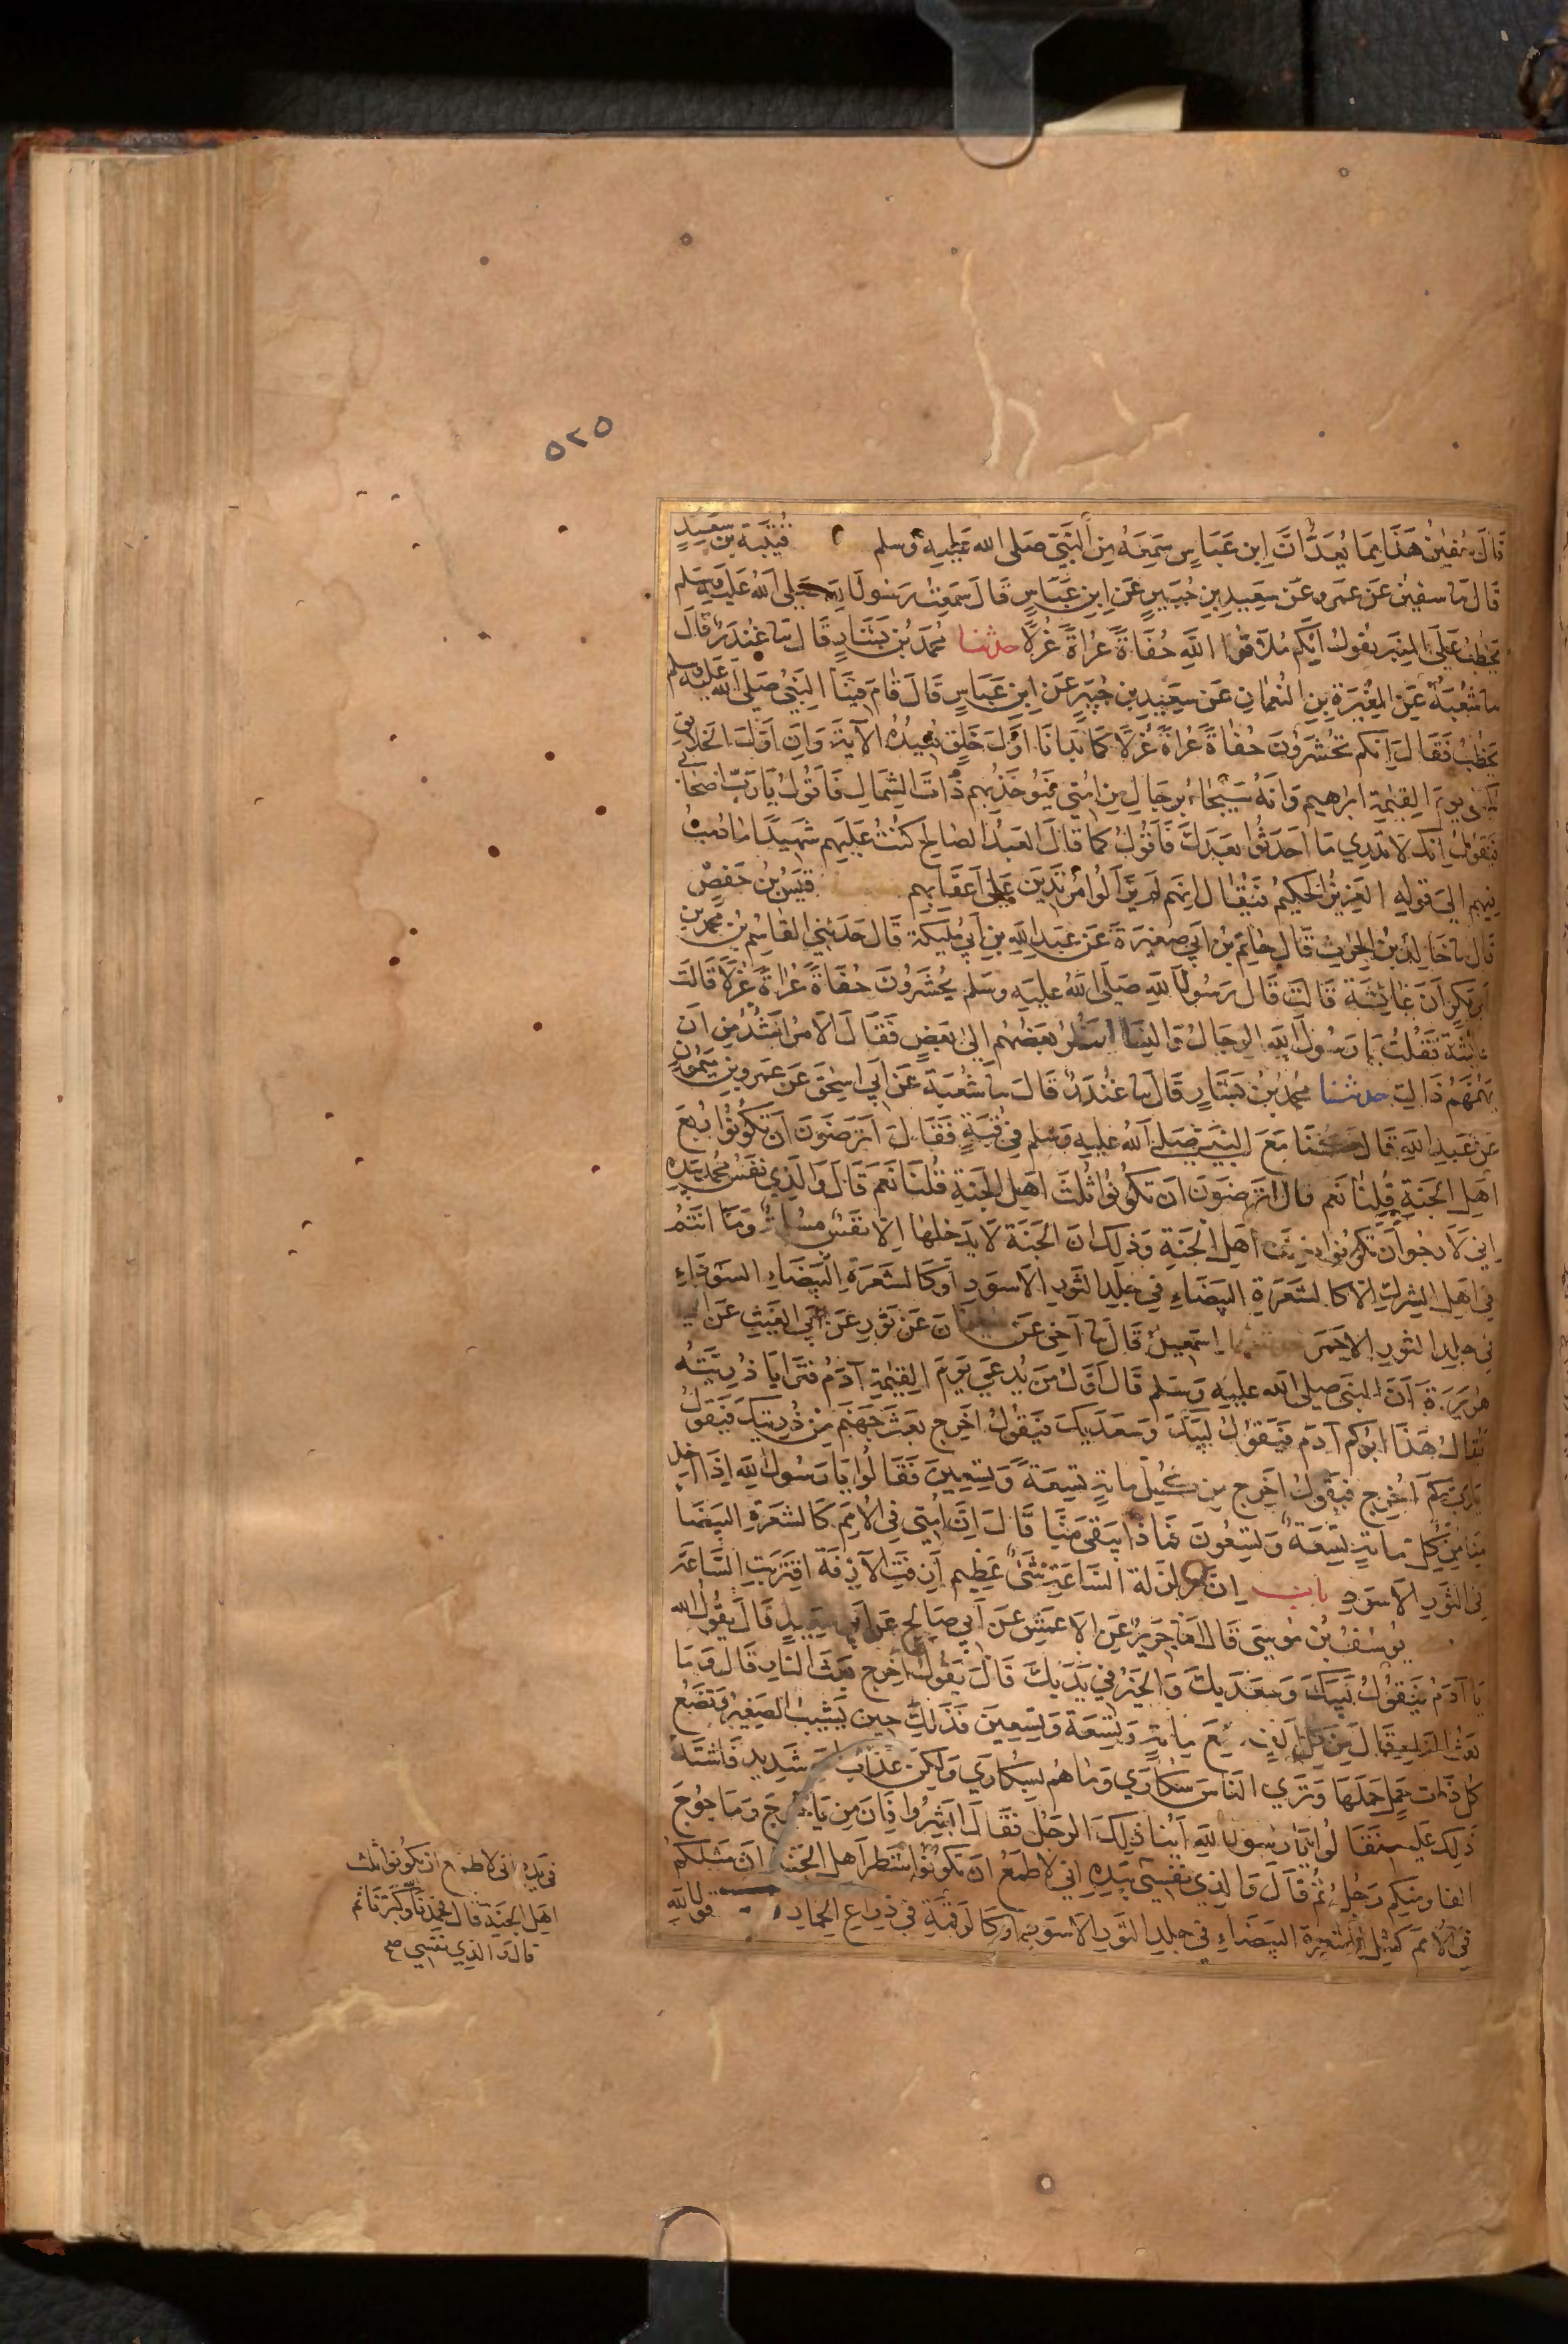 ٥٢٥
قَالَ سُفين هَذَا مِمَا يُعَدُّ اَنَّ ابنِ عَبَاسٍ سَمِعَهُ مِنَ النَّبِيِّ صَلى الله عَلَيهِ وَسلم قُتَيْبَة بن سَعِيدٍ
قَالَ ثنا سفين عَنْ عَمرو عَنْ سَعِيدِ بنِ جُبَيرٍ عَنِ ابنِ عَبَاسٍ قَالَ سَمِعتُ رَسُولَ اللهِ صَلى اللهُ عَلَيهِ وَسَلم
يَخطُبُ عَلَى المِنبَرِ يَقولُ اِنَّكم مُلَاقُوا اللَّهِ حُفَاةً عُراةً غُرلًا حدثنا محمدُ بنُ بَشَّارٍ قَالَ ثنا غُندَرٌ قَالَ
ثنا شُعْبَةُ عَنِ المُغِيرَةِ بنِ النُعمَانِ عَن سَعِيدِ بنِ جُبَيرٍ عَنِ ابنِ عَبَاسٍ قَالَ قَامَ فِينَا النَبِيُ صَلى الله عَلَيه وسلم
يَخطُبُ فَقَالَ اِنَكم تُحشَرُونَ حُفَاةً عُراةً غُرلًا كَمَا بَدَانَا اَوَّلَ خَلقٍ نُعِيدُهُ الآيَةَ وَاِنَ اَوَّلَ الخَلَائقِ
يُكسَى يَومَ القِيمَةِ ابرٰهيم وَاَنَهُ سَيُجَاءُ بِرِجَالٍ مِن اُمَّتِي فَيُوخَذُ بِهِم ذَاتَ الشِمَالِ فَاَقُولُ يَارَبِّ اصحَابي
فَيَقولُ اِنَّكَ لَا تَدرِي مَا اَحدَثُوا بَعدَكَ فَاَقُولُ كَمَا قَالَ العَبدُ الصَالحُ كُنتُ عَلَيهِم شَهِيدًا مَا دُمتُ
فِيهِم اِلَى قَولِهِ العَزِيزُ الحَكِيمُ فَيُقَالُ اِنَهُم لَم يَزَالُوا مُرتَدِينَ عَلَى اَعقَابِهِم قَيسُ بنُ حَفصٍ
قَالَ ثنا خَالِدُ بنُ الحٰرِثِ قَالَ حَاتِمُ بنُ اَبي صَغِيرَةَ عَن عَبدِ اللَّهِ بنِ اَبي مُلَيكَةَ قَالَ حَدَثَنِي القَاسِمُ بنُ محمدِ بنِ
اَبي بَكرٍ اَنَّ عَائِشَةَ قَالَت قَالَ رَسُولُ اللهِ صَلَى اللَّهُ عَلَيهِ وَسَلم يُحشَرُونَ حُفَاةً عُراةً غُرلًا قَالَت
عَائِشَةُ فَقُلتُ يَا رَسُولَ اللهِ الرِجَالُ وَالنِسَا يَنظُرُ بَعضُهُم اِلَى بَعضٍ فَقَالَ الاَمرُ اَشَدُّ مِن اَن
يُهِمَّهُم ذَاكَ حدثنا محمدُ بنُ بَشَّارٍ قَالَ ثنا غُندَرٌ قَالَ ثنا شُعْبَةُ عَن اَبي اِسحٰقَ عَن عَمرِو بنِ مَيمُونٍ
عَن عَبدِ اللهِ قَالَ كُنَا مَعَ النَبِيِّ صَلى اللهُ عَلَيهِ وَسَلم فِي قُبَةٍ فَقَالَ اَتَرضَونَ اَن تَكُونُوا رُبعَ
اَهلِ الجَنةِ قُلنَا نَعَم قال اتَرضَونَ ان تَكُونُوا ثُلثَ اَهلِ الجَنةِ قُلنَا نَعَم قَالَ وَالَذِي نَفسُ محمدٍ بِيَدِهِ
اِنِي لَاَرجُو اَن تَكُونُوا نِصفَ اَهلِ الجَنَةِ وَذلك اَنَ الجَنَةَ لَا يَدخُلُهَا اِلَّا نَفسٌ مسلمةٌ وَمَا اَنتُم
فِي اَهلِ الشِركِ اِلَّا كالشَعَرَةِ البَيضَاءِ فِي جِلدِ الثَورِ الاَسوَدِ اَو كَالشَعَرَةِ السَودَاءِ
فِي جِلدِ الثَورِ الاَحمَرِ اِسمٰعِيلُ قَالَ ثنا اَخِي عَن سليمان عَن ثَورٍ عَن اَبي الغَيثِ عَن ابي
هُرَيرَةَ اَنَّ النَبِي صَلى الله عليه وَسَلم قَالَ اَوَّلُ مَن يُدعَى يَومَ القِيمَةِ آدَمُ فتَرَايَا ذُرِيَّتُهُ
فَيُقَالُ هَذَا ابُوكُم آدَم فَيَقُولُ لَبَيكَ وَسَعدَيكَ فَيَقُولُ اَخرِج بَعثَ جَهَنَّمَ مِن ذُرِيتِكَ فَيَقُولُ
يَارَبِّ كَم اُخرِجُ فَيَقُولُ اَخرِج مِن كُلِّ مايةٍ تِسعَةً وَتِسعِينَ فَقَالُوا يَا رَسُولَ اللهِ اِذَا اُخِذَ
مِنَّا مِن كُلِّ مايةٍ تِسعَةٌ وَتِسعُونَ فمَاذَا يَبقَى مِنَّا قَالَ اِنَّ اُمَتِي فِي الاُمَمِ كَالشَعَرَةِ البَيضَا
فِي الثَورِ الاَسوَدِ باب اِنَّ زَلزَلَةَ السَاعَةِ شَيءٌ عَظِيم اَزِفَتِ الآزِفَة اقتَرَبَتِ السَّاعَة
يُوسُفُ بنُ مُوسَى قَالَ ثنا جَرِيرٌ عَنِ الاَعمَشِ عَن اَبي صَالحٍ عَن اَبي سَعِيدٍ قَالَ يَقُولُ الله
يَا آدَمُ فَيَقُولُ لَبَيكَ وَسَعدَيكَ وَالخَيرُ فِي يَدَيكَ قَالَ يَقُولُ اَخرِج بَعثَ النَارِ قَالَ وَمَا
بَعثُ النار قَالَ مِن كُلِّ اَلفٍ تِسعَ مايةٍ وَتِسعَةً وَتِسعِينَ فَذَلِكَ حِينَ يَشِيبُ الصَغِيرُ وَتَضَعُ
كُلُ ذَاتِ حَملٍ حَملَهَا وَتَرَي النَاسَ سُكَارَي وَمَا هُم بِسُكَارَي وَلكِنَّ عَذَابَ اللهِ شَدِيدٌ فَاشتَدَّ
ذَلِكَ عَلَيهم فَقَالُوا يَا رَسُولَ اللهِ اَيُّنَا ذَلِكَ الرَجُلُ فَقَالَ اَبشِرُوا فَاِنَّ مِن يَاجُوجَ وَمَاجُوجَ
الفا وَمِنكُم رَجُلٌ ثُمَّ قَالَ وَالذِي نَفسِي بِيَدِهِ اِني لَاَطمَعُ اَن تَكُونُوا شَطرَ اَهلِ الجَنَّةِ اِنَّ مَثَلَكُم
فِي الاُمَمِ كَمَثَلِ الشَعرة البَيضَاءِ فِي جِلدِ الثَورِ الاَسوَدِ او كَالرَقمَةِ فِي ذِرَاعِ الحِمَارِ قول الله
في يده اني لاطمع ان تكونوا ثلث
اهل الجنة قال فحمدنا الله وكبرنا ثم
قال والذي نفسي صح